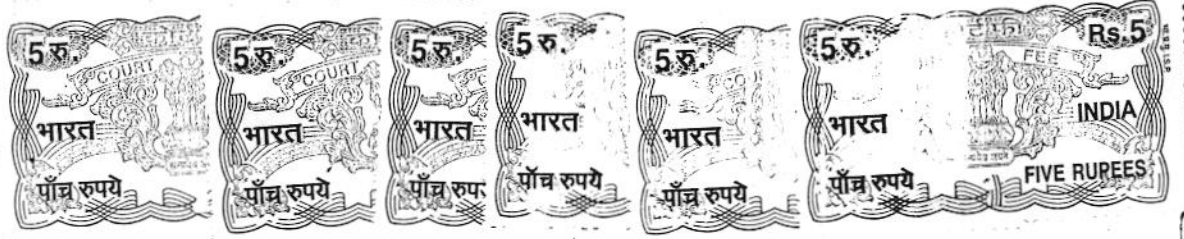 5 रु.
COURT
भारत
पाँच रुपये
5 रु.
COURT
भारत
पाँच रुपये
5 रु.
भारत
पाँच रुपर
5 रु.
भारत
पाँच रुपये
5 रु.
भारत
पाँच रुपये
5 रु. Rs. 5
FEE
भारत INDIA
पाँच रुपये FIVE RUPEES